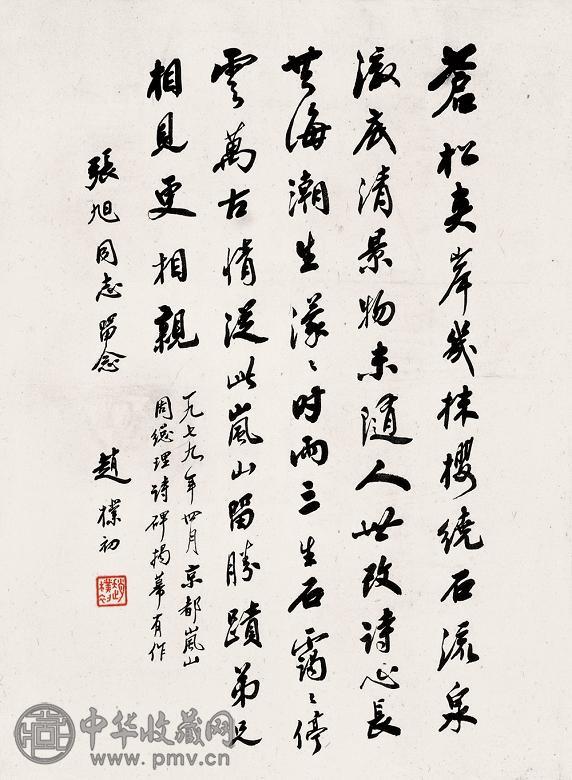 蒼松夾岸幾抹櫻繞石流泉
澈底清景物未随人世改詩心長
共海潮生濛〻时雨三生石靄〻停
雲萬古情從此嵐山留勝蹟弟兄
相見更相親
一九七九年四月京都嵐山
周總理詩碑揭幕有作
張旭同志留念
趙樸初
趙樸初
中华收藏网
www.pmv.cn